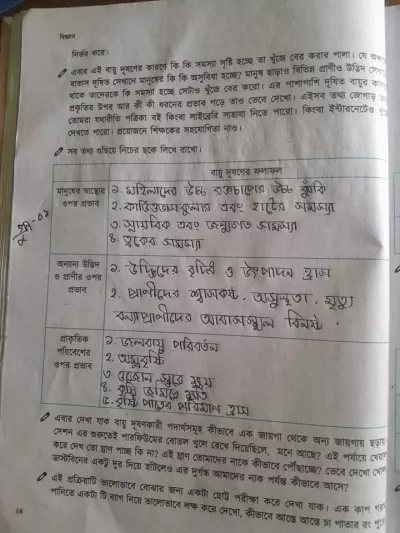 বিজ্ঞান
নির্ভর করে।
এবার এই বায়ু দূষণের কারণে কি কি সমস্যা সৃষ্টি হচ্ছে তা খুঁজে বের করার পালা। যে
বাতাস দূষিত সেখানে মানুষের কি কি অসুবিধা হচ্ছে? মানুষ ছাড়াও বিভিন্ন প্রাণীও উদ্ভিদ
থাকে তাদেরকে কি সমস্যা হচ্ছে সেটাও খুঁজে বের করো। এর পাশাপাশি দূষিত বায়ুর
প্রকৃতির উপর আর কী কী ধরনের প্রভাব পড়ে তাও ভেবে দেখো। এইসব তথ্য জোগাড়
তোমরা যথারীতি পত্রিকা বই কিংবা লাইব্রেরি সাহায্য নিতে পারো। কিংবা ইন্টারনেটেও
দেখতে পারো। প্রয়োজনে শিক্ষকের সহযোগিতা নাও।
সব তথ্য গুছিয়ে নিচের ছকে লিখে রাখো।
বায়ু দূষণের ফলাফল
মানুষের স্বাস্থ্যের ওপর প্রভাব
১. মহিলাদের উচ্চ রক্তচাপের উচ্চ ঝুঁকি
২. কার্ডিওভাসকুলার এবং হার্টের সমস্যা
৩. স্নায়বিক এবং জন্মগত সমস্যা
৪. ত্বকের সমস্যা
অন্যান্য উদ্ভিদ
ও প্রাণীর ওপর
প্রভাব
১. উদ্ভিদের বৃদ্ধি ও উৎপাদন হ্রাস
২. প্রাণীদের শ্বাসকষ্ট, অসুস্থতা, মৃত্যু
বন্যপ্রাণীদের আবাসস্থল বিনষ্ট
প্রাকৃতিক
পরিবেশের
ওপর প্রভাব
১. জলবায়ু পরিবর্তন
২. অম্লবৃষ্টি
৩. ওজোন স্তরে ক্ষয়
৪. কৃষি জমিতে ক্ষতি
৫. বৃষ্টি পাতের পরিমাণ হ্রাস
এবার দেখা যাক বায়ু দূষণকারী পদার্থসমূহ কীভাবে এক জায়গা থেকে অন্য জায়গায়
সেশন এর শুরুতেই পারফিউমের বোতল খুলে রেখে দিয়েছিলে, মনে আছে? এই পর্যায়ে
করে দেখ তো ঘ্রাণ পাচ্ছ কি না? এই ঘ্রাণ তোমাদের নাকে কীভাবে পৌঁছাচ্ছে? ভেবে দেখো
ডাস্টবিনের একটু দূর দিয়ে হাটলেও এর দুর্গন্ধ আমাদের নাক পর্যন্ত কীভাবে আসে?
এই প্রক্রিয়াটি ভালোভাবে বোঝার জন্য একটা ছোট্ট পরীক্ষা করে দেখা যাক। এক কাপ
পানিতে একটা টি ব্যাগ নিয়ে ভালোভাবে লক্ষ করে দেখো, কীভাবে আস্তে আস্তে চা পাতার রং